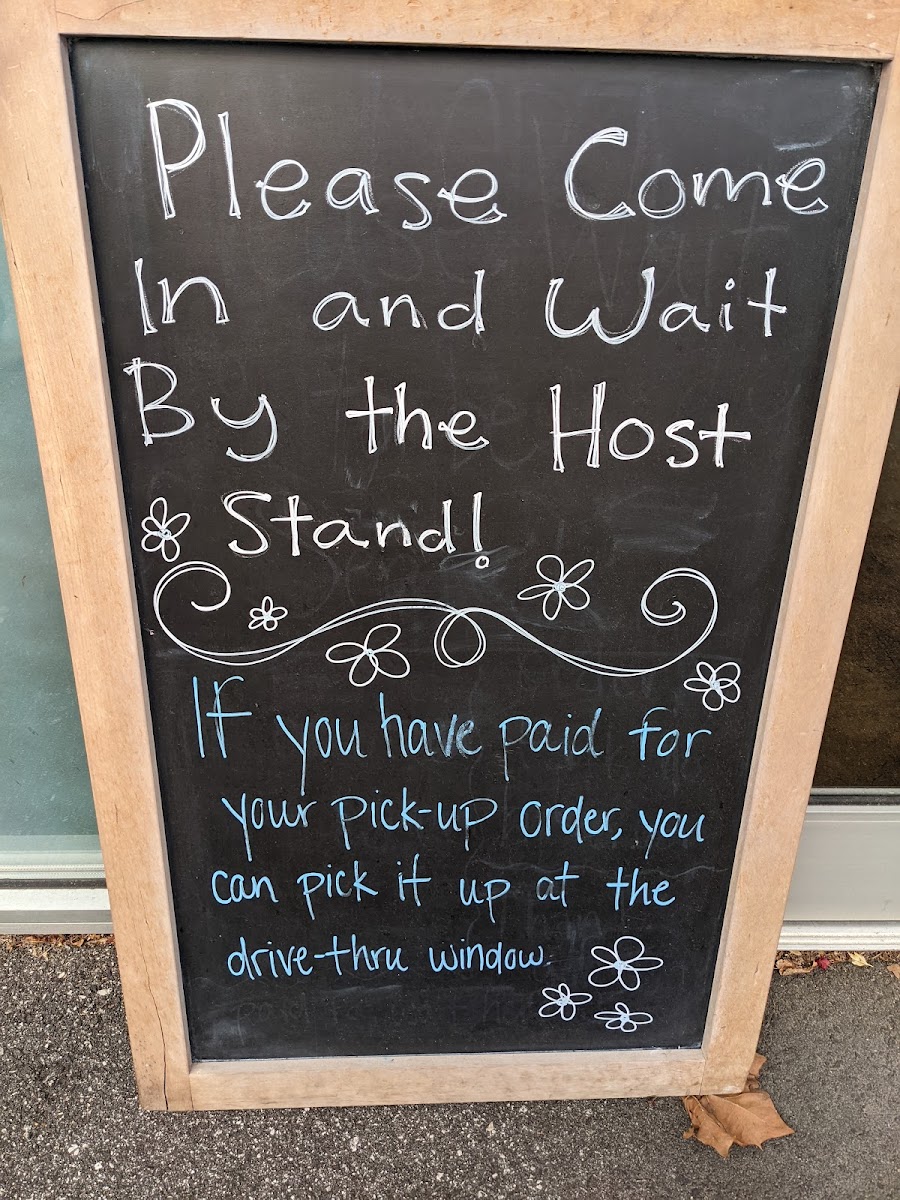 Please Come
In and Wait
By the Host
Stand!
If you have paid for
your pick-up order, you
can pick it up at the
drive-thru window.